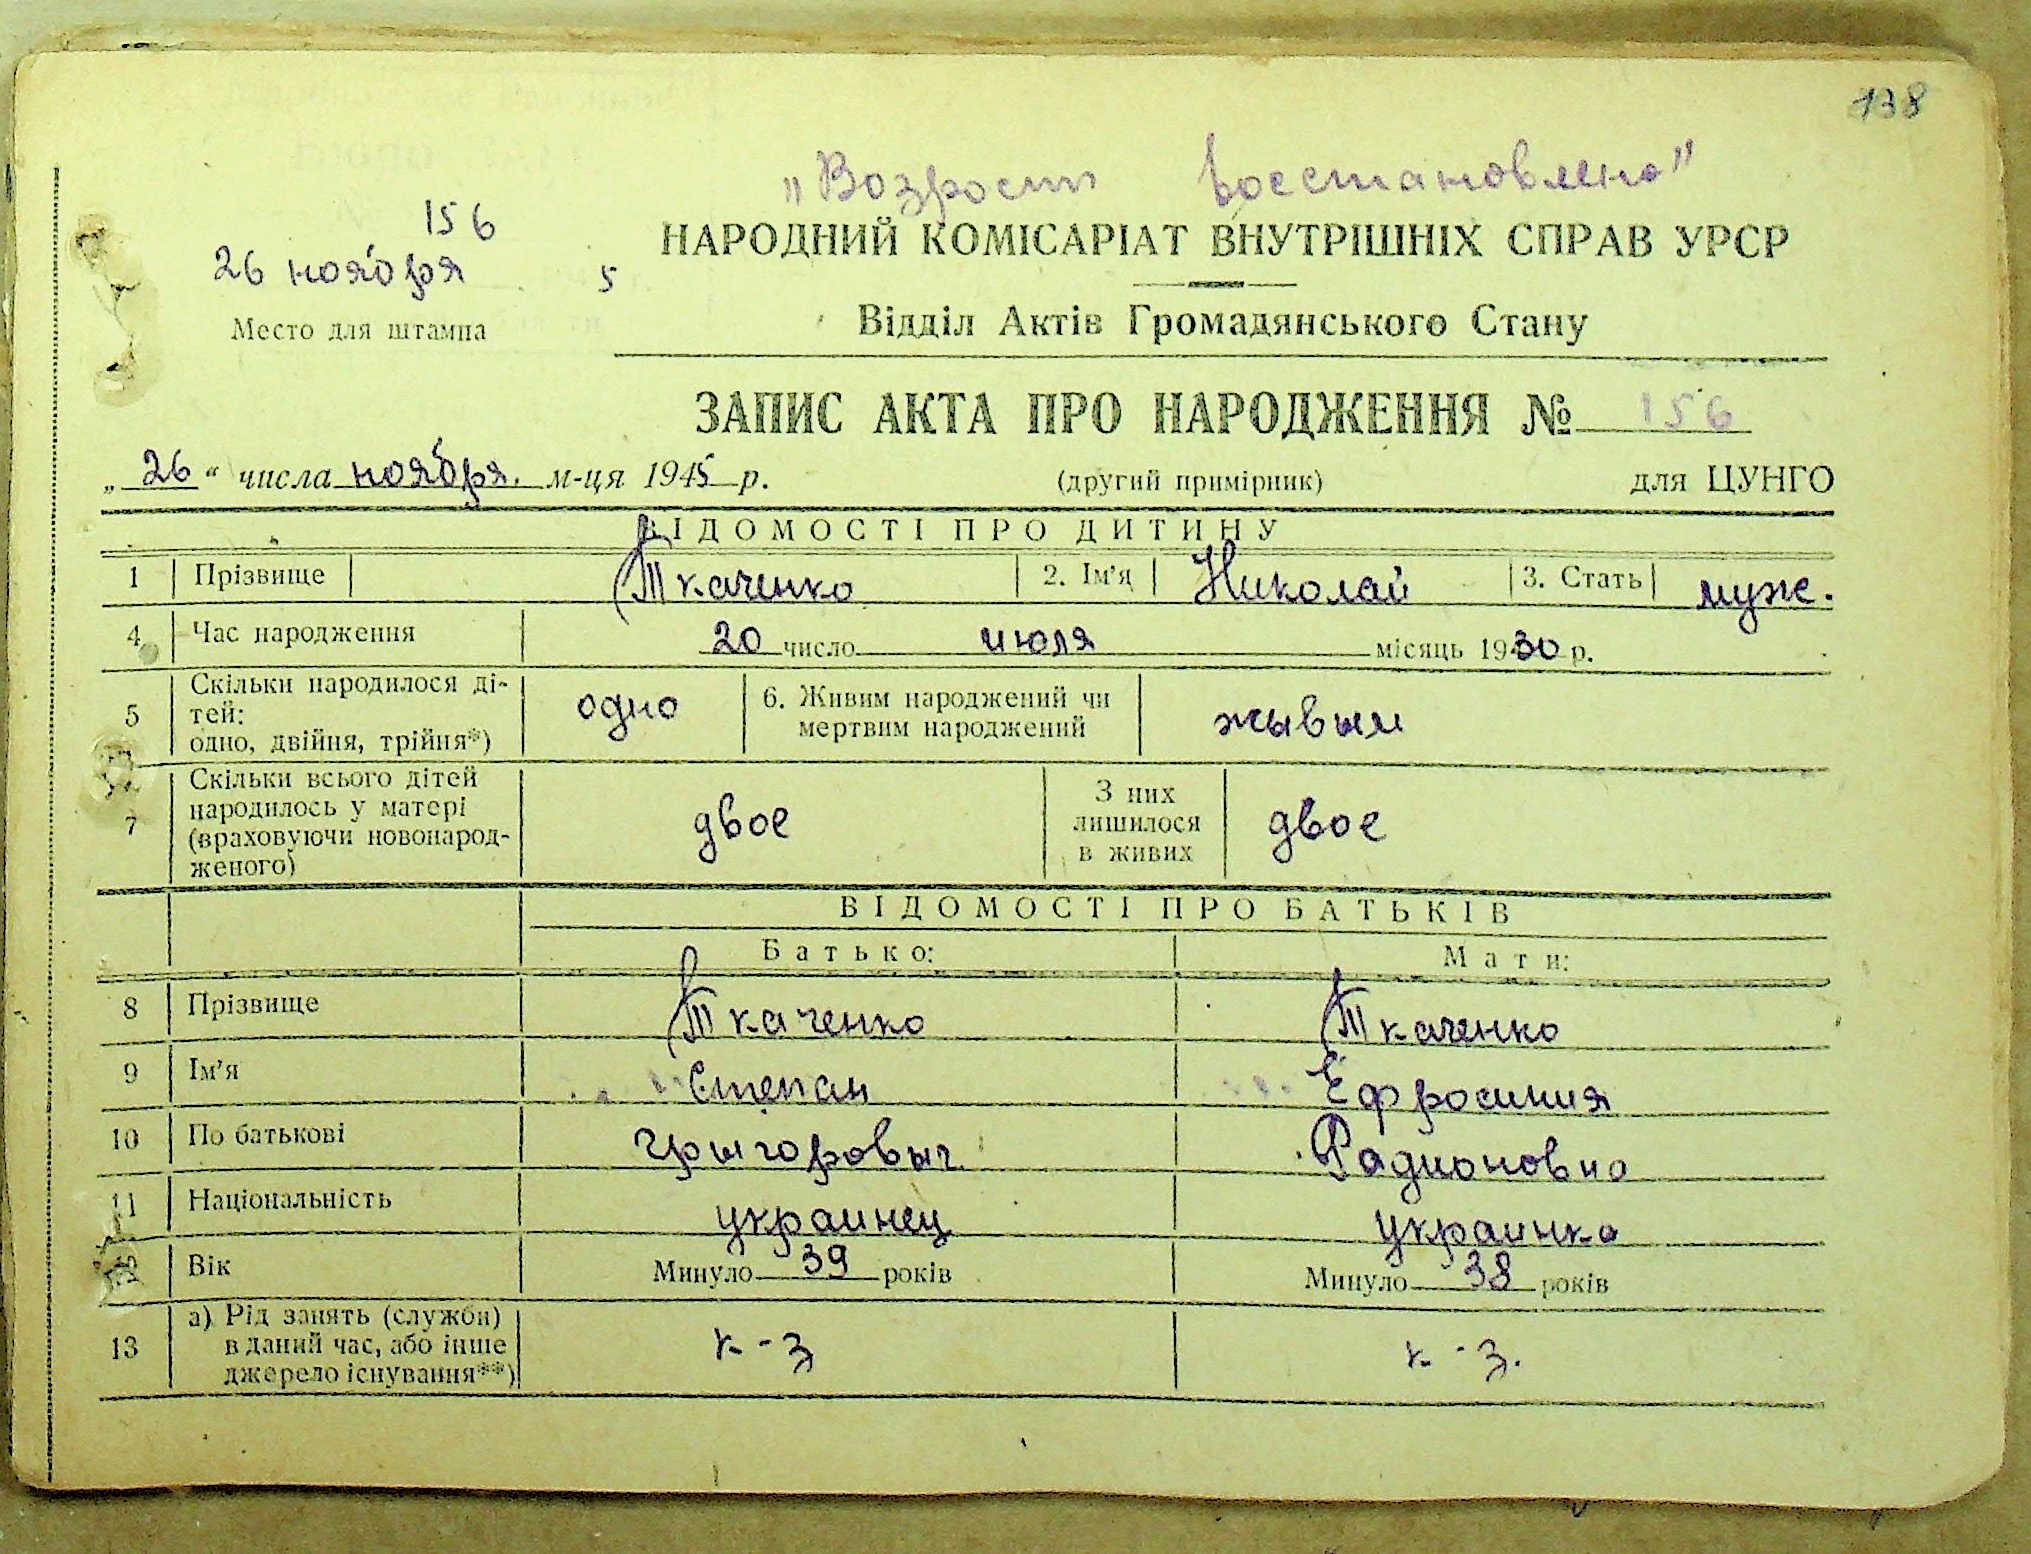 138
„Возрост восстановлено"
156
26 ноября 5
Место для штампа
НАРОДНИЙ КОМІСАРІАТ ВНУТРІШНІХ СПРАВ УРСР
Відділ Актів Громадянського Стану
ЗАПИС АКТА ПРО НАРОДЖЕННЯ № 156
„26“ числа ноября. м-ця 1945 р. (другий примірник) для ЦУНГО
ВІДОМОСТІ ПРО ДИТИНУ
1 Прізвище Ткаченко 2. Ім'я Николай 3. Стать муж.
4 Час народження 20 число июля місяць 1930 р.
5 Скільки народилося ді-
тей:
одно, двійня, трійня*) одно 6. Живим народжений чи
мертвим народжений жывым
7 Скільки всього дітей
народилось у матері
(враховуючи новонарод-
женого) двое З них
лишилося
в живих двое
ВІДОМОСТІ ПРО БАТЬКІВ
Батько: Мати:
8 Прізвище Ткаченко Ткаченко
9 Ім'я Степан Ефросиния
10 По батькові Грыгоровыч. Радионовна
11 Національність украинец украинка
12 Вік Минуло 39 років Минуло 38 років
13 а) Рід занять (служби)
в даний час, або інше
джерело існування**) к-з к-з.